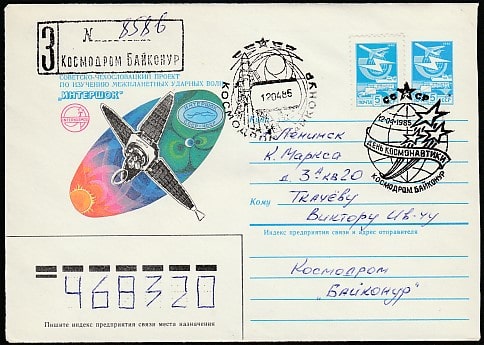 З N 8586
Космодром Байконур
СОВЕТСКО-ЧЕХОСЛОВАЦКИЙ ПРОЕКТ
ПО ИЗУЧЕНИЮ МЕЖПЛАНЕТНЫХ УДАРНЫХ ВОЛН
"ИНТЕРШОК"
ИНТЕРКОСМОС
ИНТЕРШОК
120485
КОСМОДРОМ БАЙКОНУР
ПОЧТА
СССР
12-04-1985
ДЕНЬ КОСМОНАВТИКИ
КОСМОДРОМ БАЙКОНУР
г. Ленинск
К. Маркса
д. 3а кв 20
Кому Ткачёву
Виктору Ив-чу
Индекс предприятия связи и адрес отправителя
Космодром
"Байконур"
468320
Пишите индекс предприятия связи места назначения